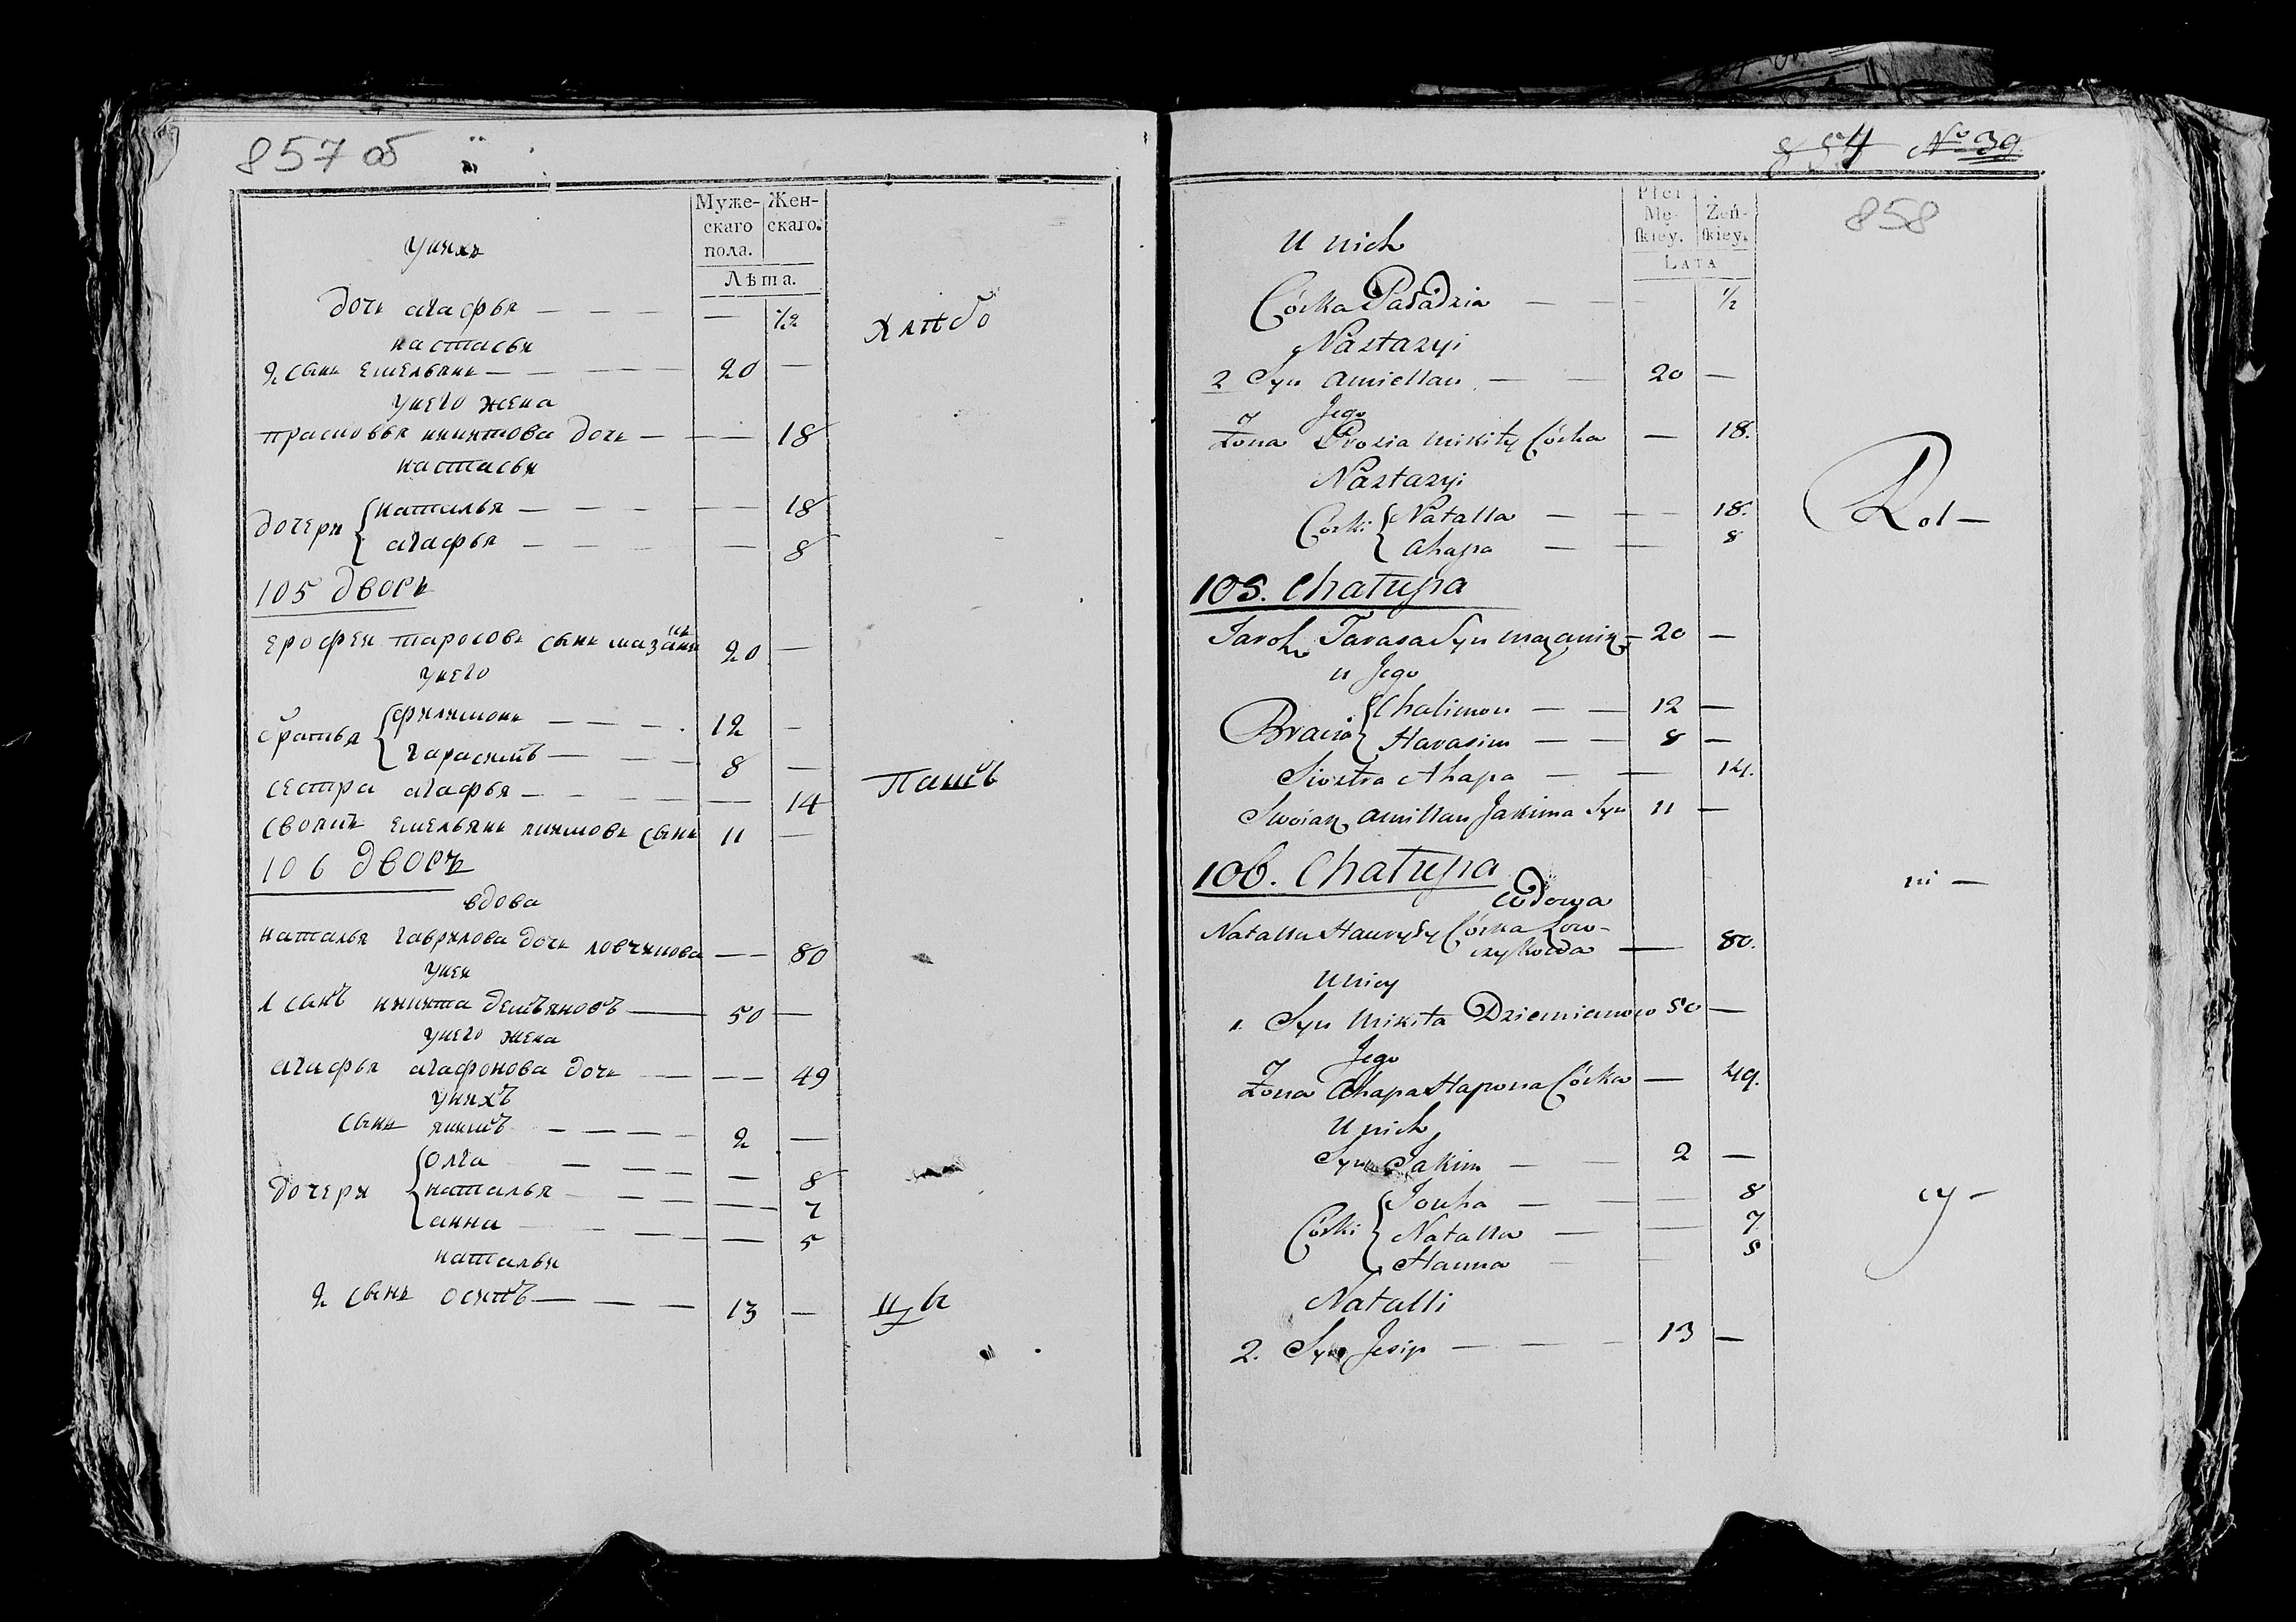 857 об
Муже-
скаго
пола.
Жен-
скаго.
Лѣта.
унихъ
дочь агафья — — — — ½
хлѣбо
настасьи
2 сынъ Емельянъ — — — 20 —
унего жена
прасковья никитова дочь — — — 18
настасьи
дочери { наталья — — — — 18
агафья — — — — 8
105 дворъ
ерофеи тарасовъ сынъ мазаникъ 20 —
унего
братья { филимонъ — — — 12 —
гарасимъ — — — 8 —
сестра агафья — — — — 14
пашъ
своякъ емельянъ якимовъ сынъ 11 —
106 дворъ
вдова
наталья гаврилова дочь ловчикова — — 80
унеи
1 сынъ никита демьяновъ — 50 —
унего жена
агафья агафонова дочь — — — 49
унихъ
сынъ якимъ — — — 2 —
дочери { олга — — — — 8
наталья — — — — 7
анна — — — — 5
натальи
2 сынъ осипъ — — — 13 —
цы
854 № 39
858
Płci
Mę-
skiey.
Żeń-
skiey.
LATA
U nich
Córka — — — ½
Nastazyi
2 Syn Amiellan — — 20 —
Jego
Żona Prosia Mikity Córka — 18.
Nastazyi
Córki { Natalla — — — 18.
Ahapa — — 8
Rol —
105. Chałupa
Jaroh Tarasa Syn Mazanik — 20 —
u Jego
Bracia { Chalimon — — 12 —
Harasim — — 8 —
Siostra Ahapa — — 14.
Swoiak Amillan Jakima Syn 11 —
106. Chałupa
ni —
Wdowa
Natalla Hauryły Córka Łow-
czykowa — 80.
U niey
1. Syn Mikita Dziemianow 50 —
Jego
Żona Ahapa Hapona Córka — 49.
U nich
Syn Jakim — — 2 —
Córki { Jouha — — — 8
Natalla — — 7
Hanna — — 5
cy —
Natalli
2. Syn Jesip — — — 13 —